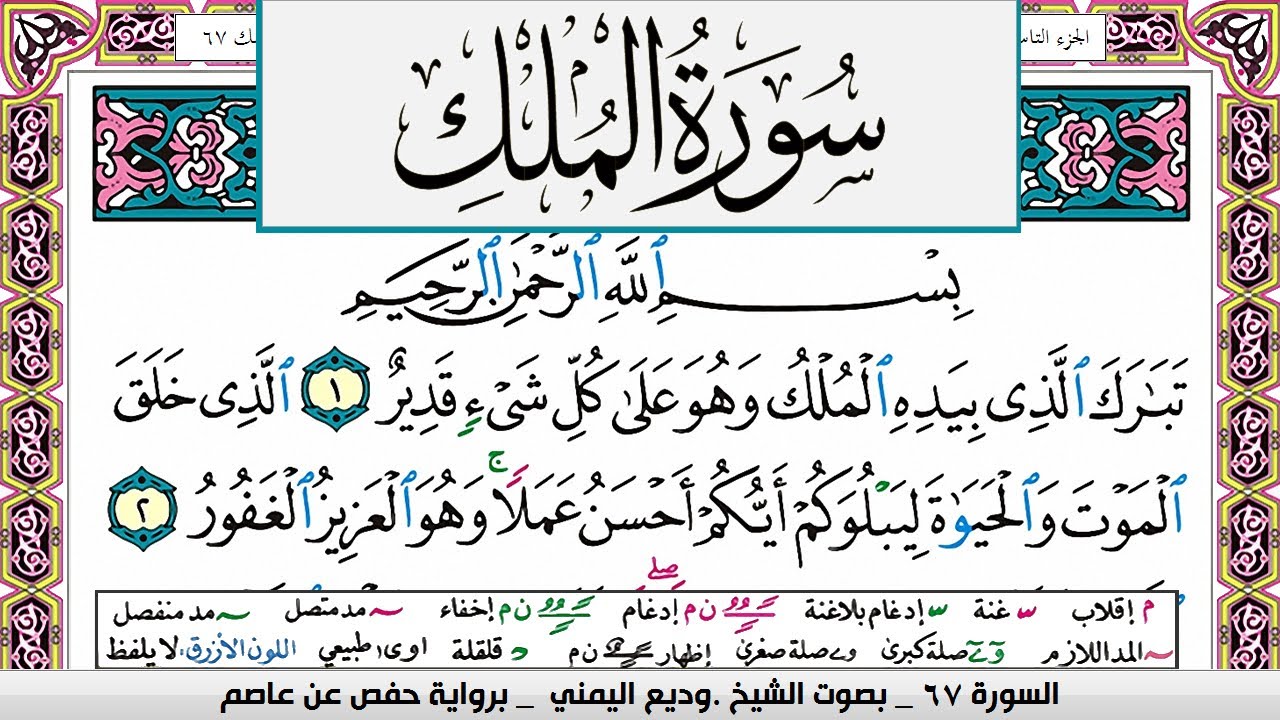 الجزء التاس
ك ٦٧
سُورَةُ الْمُلْكِ
بِسْمِ ٱللَّهِ ٱلرَّحْمَٰنِ ٱلرَّحِيمِ
تَبَٰرَكَ ٱلَّذِى بِيَدِهِ ٱلْمُلْكُ وَهُوَ عَلَىٰ كُلِّ شَىْءٍ قَدِيرٌ ١ ٱلَّذِى خَلَقَ
ٱلْمَوْتَ وَٱلْحَيَوٰةَ لِيَبْلُوَكُمْ أَيُّكُمْ أَحْسَنُ عَمَلًا ۚ وَهُوَ ٱلْعَزِيزُ ٱلْغَفُورُ ٢
صلے
م إقلاب غنة إدغام بلاغنة ن م إدغام ن م إخفاء مد متصل مد منفصل
المد اللازم صلة كبرى صلة صغرى إظهار ن م قلقلة اوى طبيعي اللون الأزرق: لا يلفظ
السورة ٦٧ _ بصوت الشيخ .وديع اليمني _ برواية حفص عن عاصم